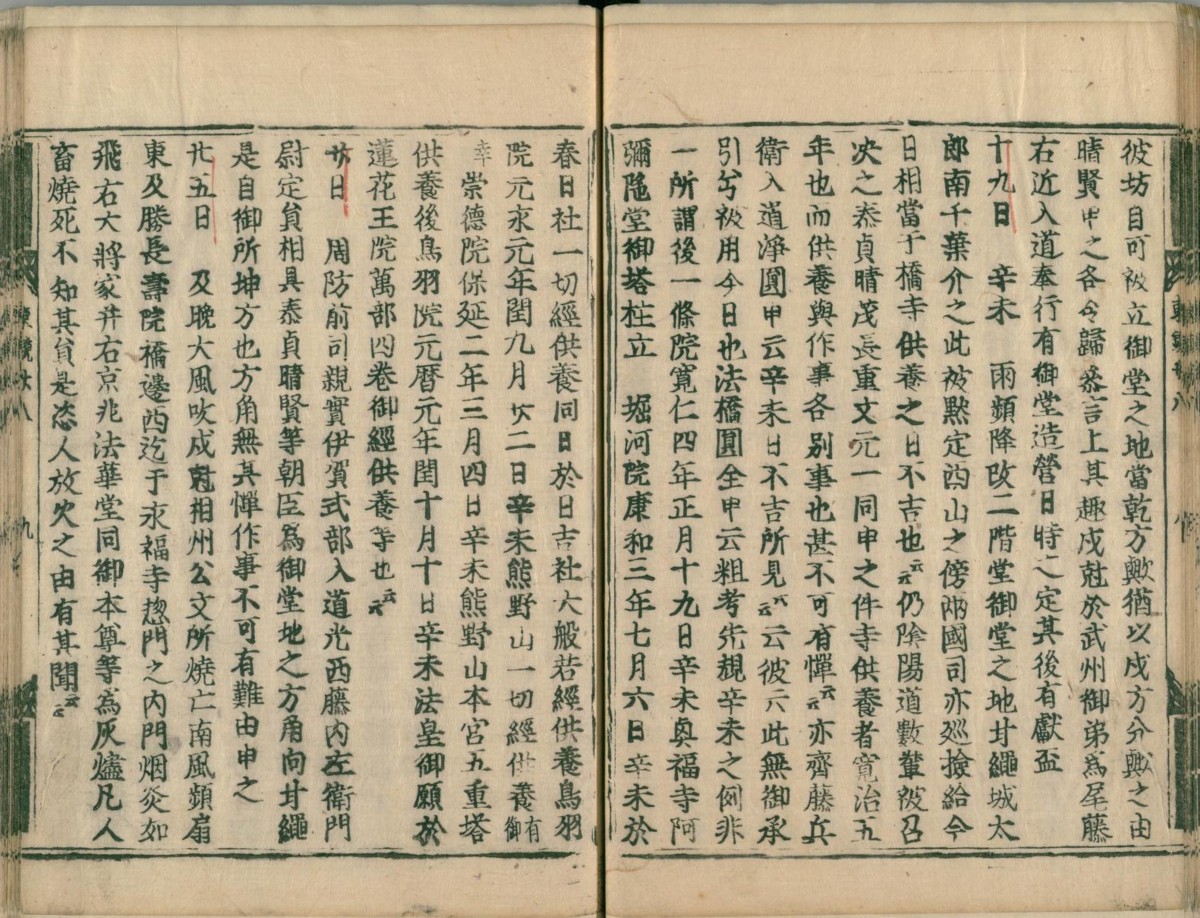 彼坊自可被立御堂之地當乾方歟猶以戌方分歟之由
晴賢申之各令歸參言上其趣戌尅於武州御弟爲尾藤
右近入道奉行有御堂造營日時之定其後有獻盃
十九日　辛未　雨頻降改二階堂御堂之地廿繩城太
郎南千葉介之北被點定西山之傍兩國司亦巡撿給今
日相當于橋寺供養之日不吉也云云仍陰陽道數輩被召
决之泰貞晴茂長重文元一同申之件寺供養者寛治五
年也而供養與作事各別事也甚不可有憚云云亦齊藤兵
衛入道淨圓申云辛未日不吉所見云云彼云此無御承
引兮被用今日也法橋圓全申云粗考先規辛未之例非
一所謂後一條院寛仁四年正月十九日辛未奥福寺阿
彌陁堂御塔柱立　堀河院康和三年七月六日辛未於
春日社一切經供養同日於日吉社大般若經供養鳥羽
院元永元年閏九月廿二日辛未熊野山一切經供養有御
幸　崇德院保延二年三月四日辛未熊野山本宮五重塔
供養後鳥羽院元暦元年閏十月十日辛未法皇御願於
蓮花王院萬部四巻御經供養等也云云
廿日　周防前司親實伊賀式部入道光西藤内左衛門
尉定貟相具泰貞晴賢等朝臣爲御堂地之方角向甘繩
是自御所坤方也方角無其憚作事不可有難由申之
廿五日　及晩大風吹戌尅相州公文所燒亡南風頻扇
東及勝長壽院橋邊西迄于永福寺惣門之内門烟炎如
飛右大將家并右京兆法華堂同御本尊等爲灰爐凡人
畜燒死不知其貟是恣人放火之由有其聞云云
東鏡廿八　九